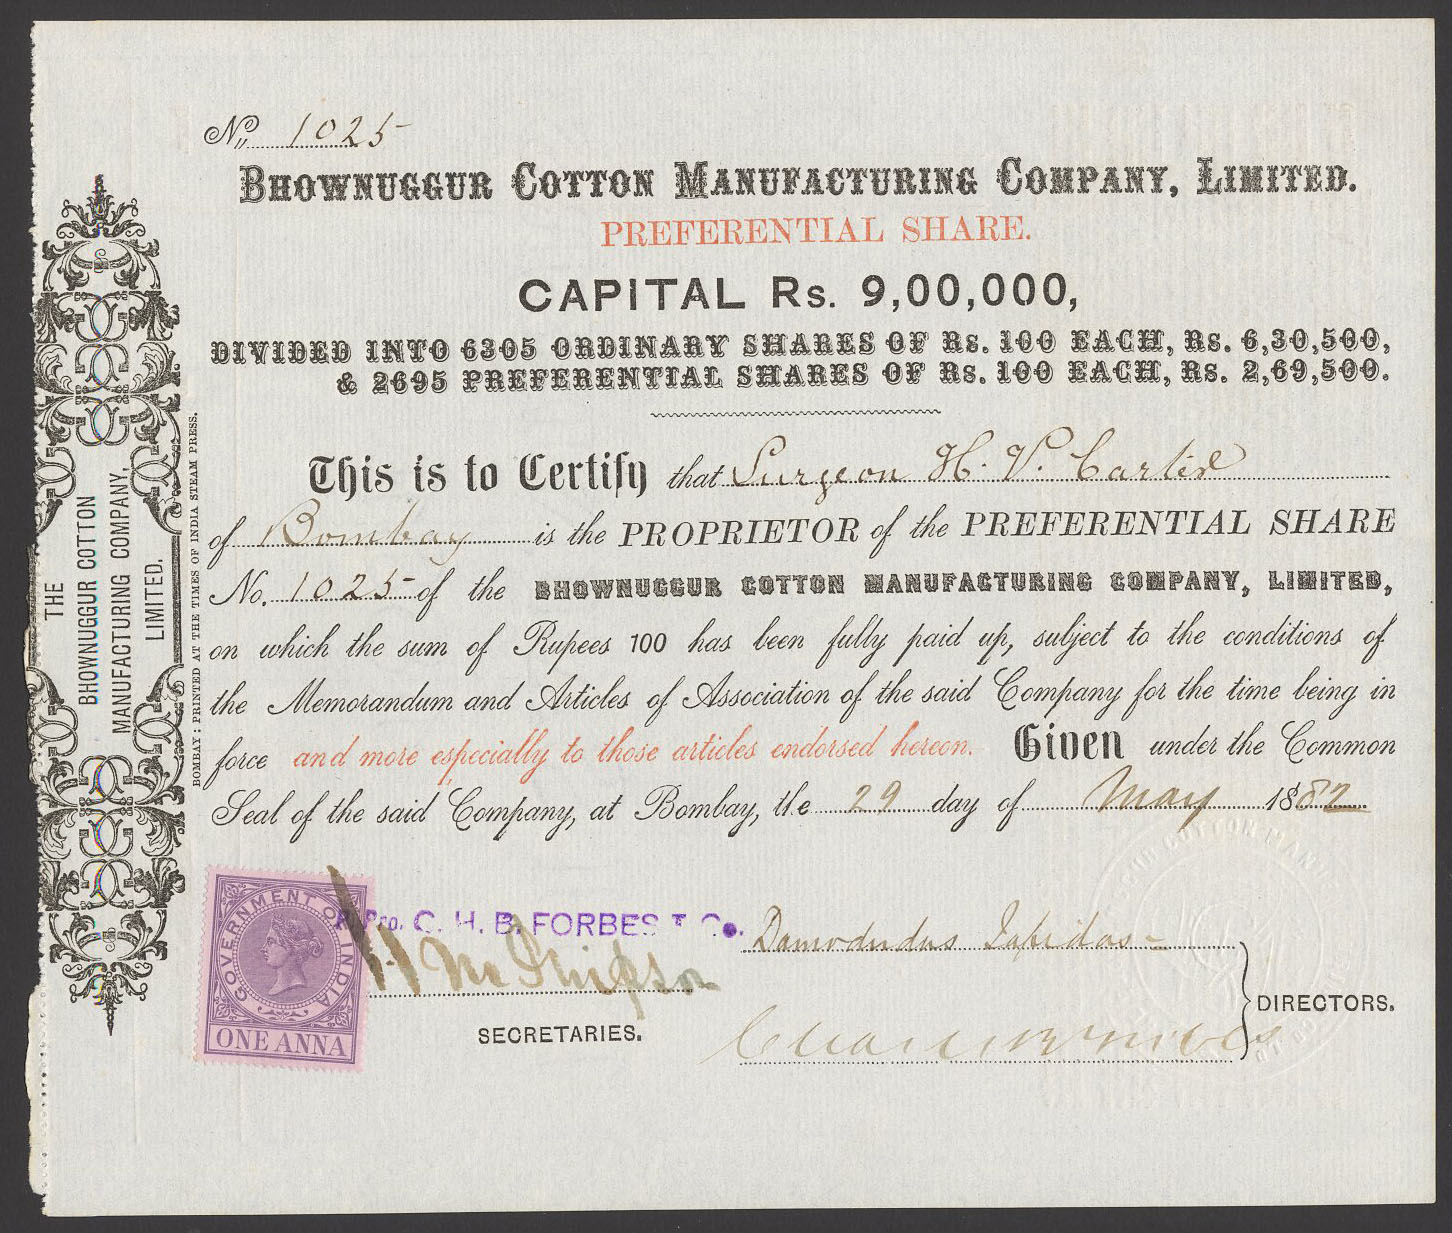 No. 1025
BHOWNUGGUR COTTON MANUFACTURING COMPANY, LIMITED.
PREFERENTIAL SHARE.
CAPITAL Rs. 9,00,000,
DIVIDED INTO 6305 ORDINARY SHARES OF Rs. 100 EACH, Rs. 6,30,500,
& 2695 PREFERENTIAL SHARES OF Rs. 100 EACH, Rs. 2,69,500.
This is to Certify that Surgeon H. V. Carter
of Bombay is the PROPRIETOR of the PREFERENTIAL SHARE
No. 1025 of the BHOWNUGGUR COTTON MANUFACTURING COMPANY, LIMITED,
on which the sum of Rupees 100 has been fully paid up, subject to the conditions of
the Memorandum and Articles of Association of the said Company for the time being in
force and more especially to those articles endorsed hereon. Given under the Common
Seal of the said Company, at Bombay, the 29 day of May 1882
P. Pro. C. H. B. FORBES & Co.
SECRETARIES.
DIRECTORS.
GOVERNMENT OF INDIA
ONE ANNA
THE
BHOWNUGGUR COTTON
MANUFACTURING COMPANY,
LIMITED.
BOMBAY: PRINTED AT THE TIMES OF INDIA STEAM PRESS.